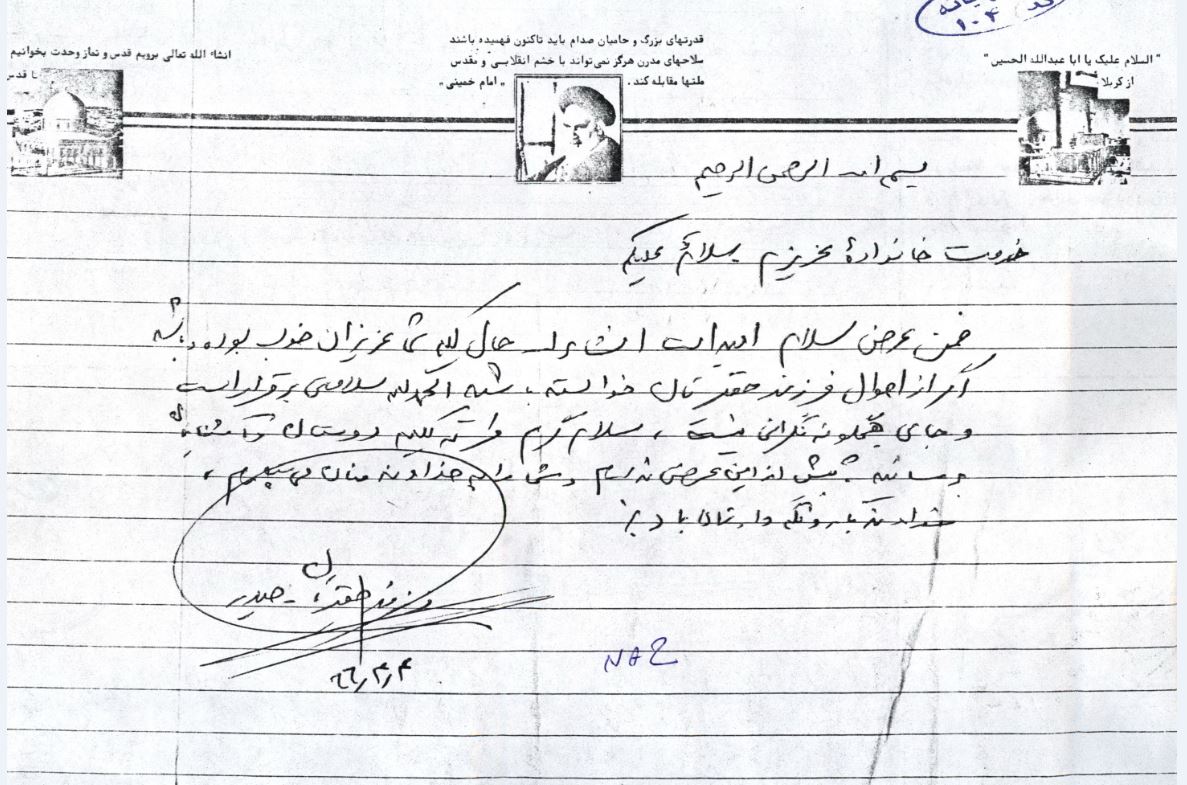 کد
۱۰۴
"السلام علیک یا ابا عبدالله الحسین"
از کربلا
قدرتهای بزرگ و حامیان صدام باید تاکنون فهمیده باشند
سلاحهای مدرن هرگز نمی‌تواند با خشم انقلابی و مقدس
ملتها مقابله کند. "امام خمینی"
انشاء الله تعالی برویم قدس و نماز وحدت بخوانیم
تا قدس
بسم الله الرحمن الرحیم
خدمت خانوادهٔ عزیزم سلام علیکم
ضمن عرض سلام امید است انشاءالله حال کلیه شما عزیزان خوب بوده باشد
اگر از احوال فرزند حقیرتان خواسته باشید الحمدلله سلامتی برقرار است
و جای هیچگونه نگرانی نیست، سلام گرم مرا به کلیه دوستان و آشنایان
برسانید بیش از این عرضی ندارم و شما را به خداوند منان می‌سپارم،
خداوند یار و نگه‌دارتان باد
فرزند حقیرتان حیدر
۶۶٫۴٫۴